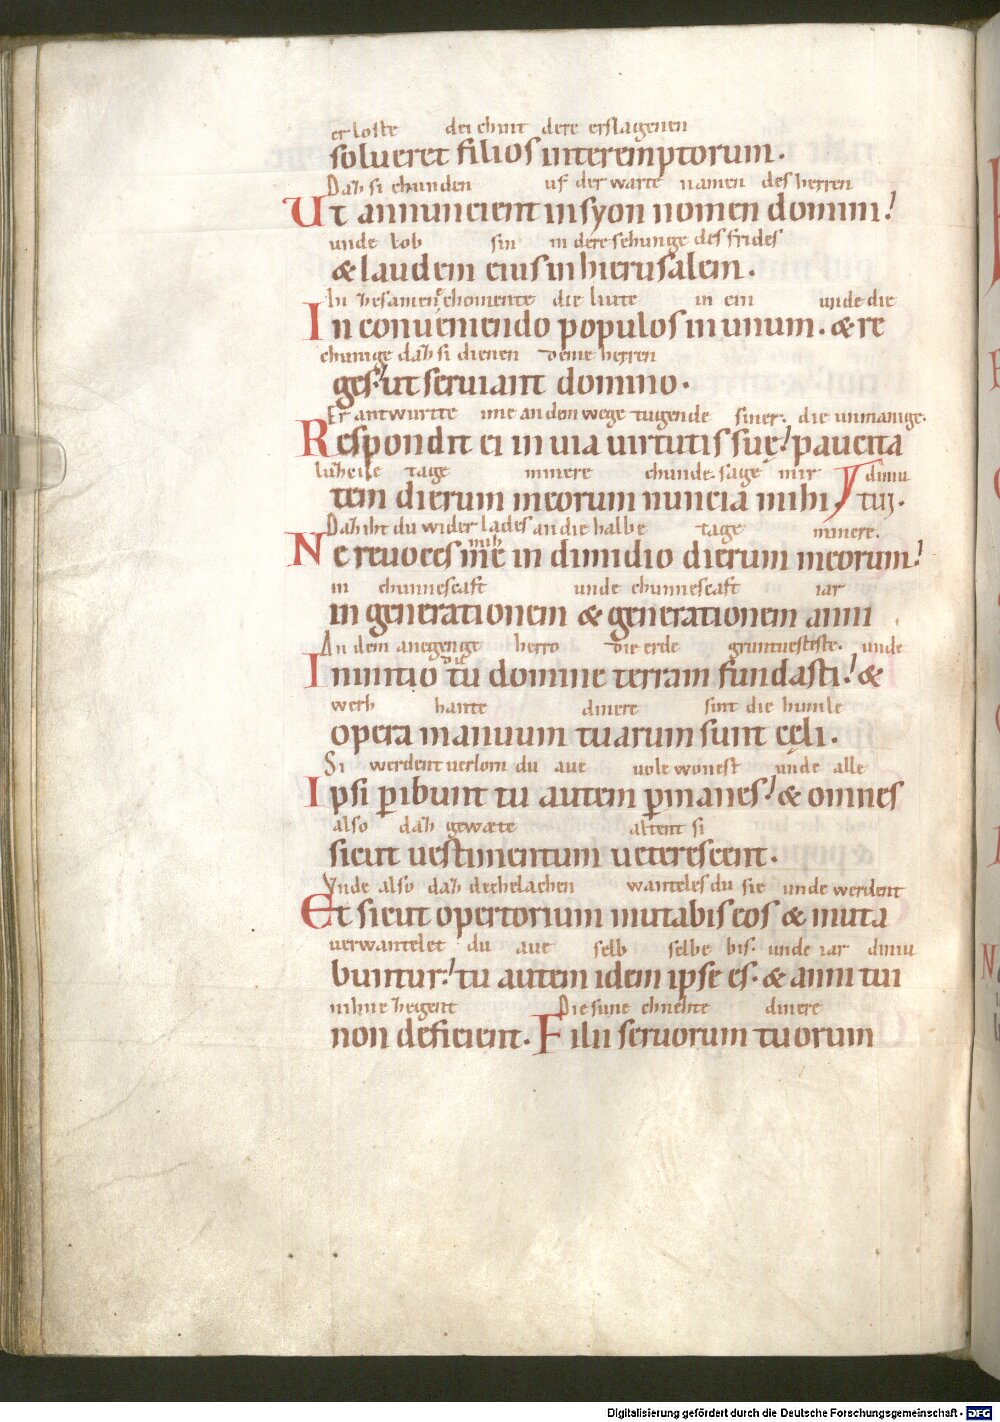 er loste dei chint dere erslagenen
solueret filios interemptorum.
Daz si chunden uf der warte namen des herren
Ut annuncient in syon nomen domini!
unde lob sin in dere sehunge des frides
& laudem eius in hierusalem.
In zesamene chomente die liute in ein unde die
In conueniendo populos in unum. & re
chunige daz si dienen deme herren
ges! ut seruiant domino.
Er antwurtte ime an dem wege tugende siner. die unmanige.
Respondit ei in uia uirtutis suę! paucita
luzcile tage minere chunde. sage mir diniu
tem dierum meorum nuncia mihi. tui.
Daz iht du wider lades an die halbe tage minere.
mih
Ne reuoces me in dimidio dierum meorum!
in chunnescaft unde chunnescaft iar
in generationem & generationem anni
An dem anegenge herro die erde gruntuestiste. unde
du
Initio tu domine terram fundasti! &
werh hante dinere sint die himile
opera manuum tuarum sunt cęli.
Si werdent uerlorn du aue uole wonest unde alle
Ipsi p̲ibunt tu autem p̲manes! & omnes
also daz gewæte altent si
sicut uestimentum ueterescent.
Unde also daz dechelachen wanteles du sie unde werdent
Et sicut opertorium mutabis eos & muta
uerwantelet du aue selb selbe bis. unde iar diniu
buntur! tu autem idem ipse es. & anni tui
nihne zegent Die sune chnehte dinere
non deficient. Filii seruorum tuorum
Digitalisierung gefördert durch die Deutsche Forschungsgemeinschaft - DFG